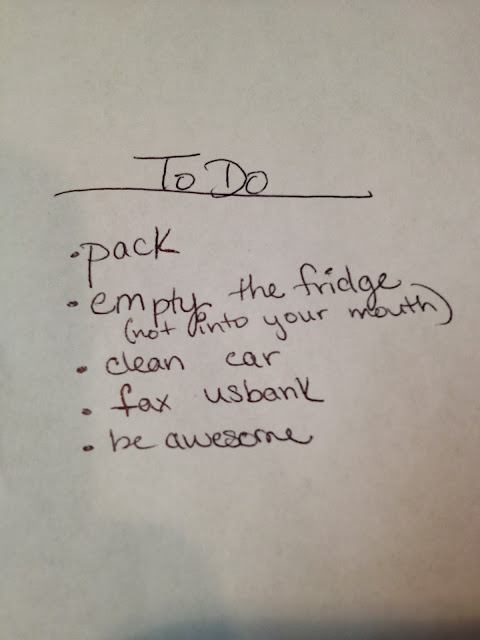 To Do
• pack
• empty the fridge
(not into your mouth)
• clean car
• fax usbank
• be awesome